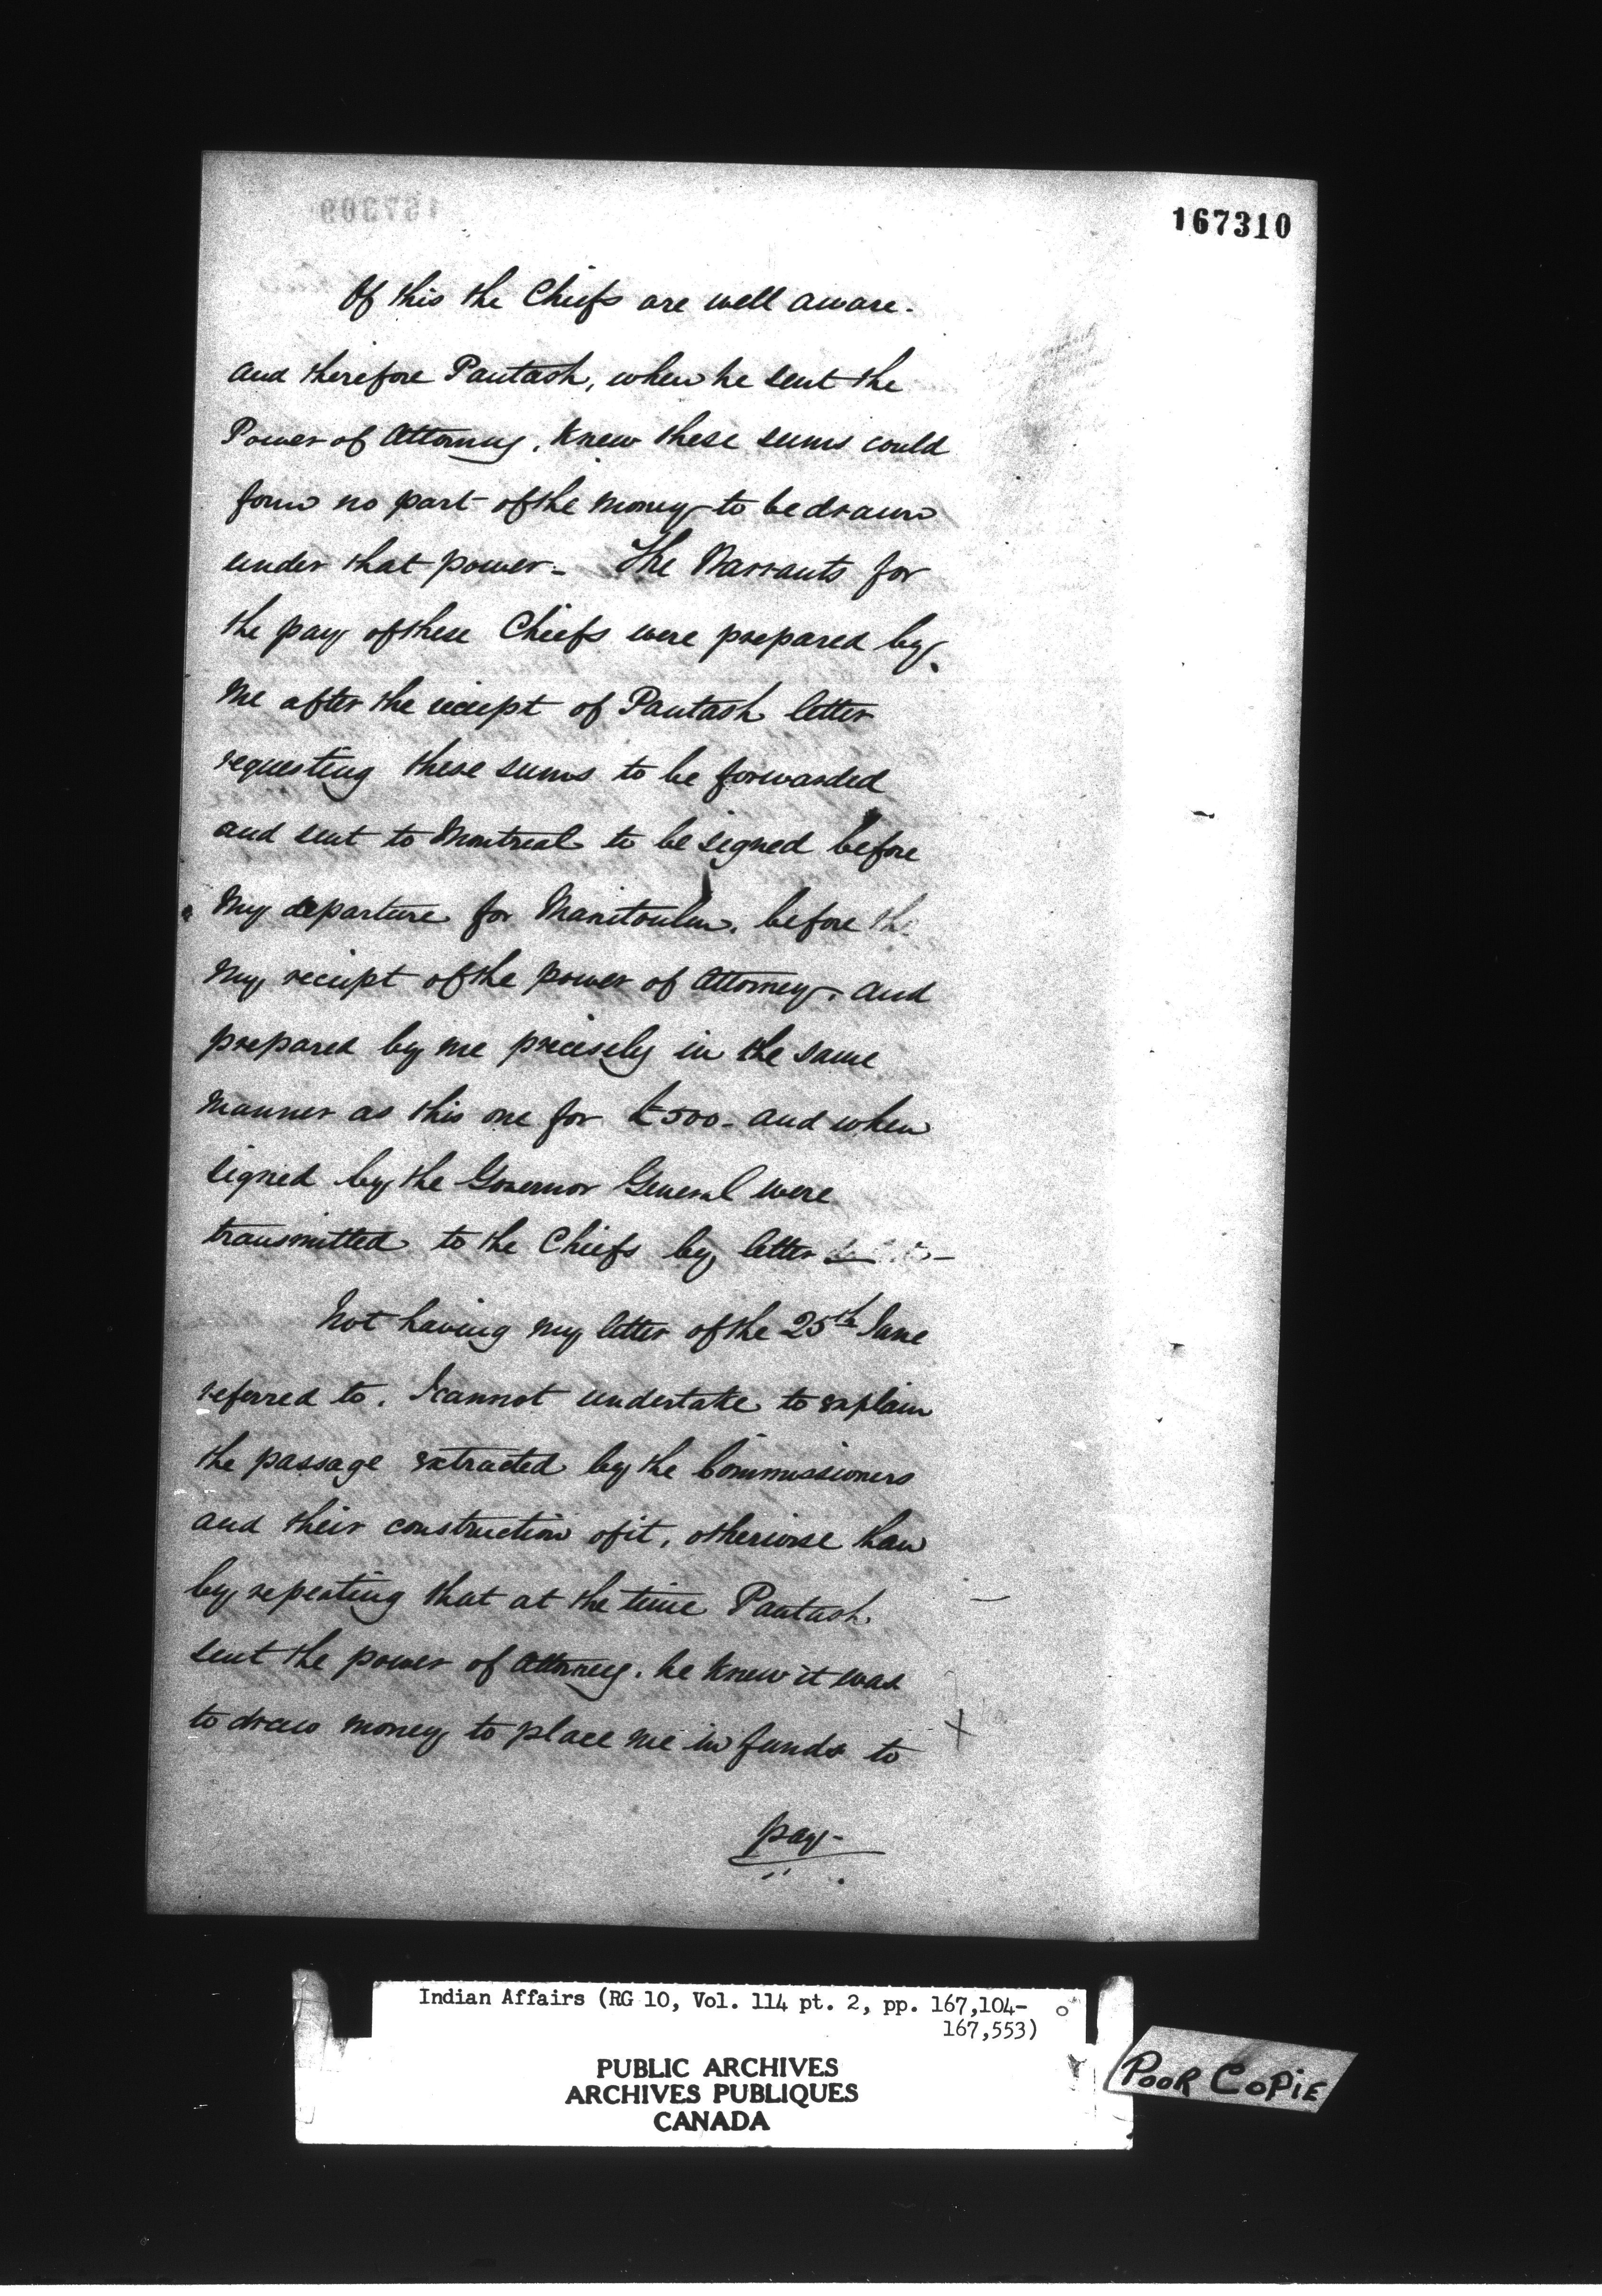 167310
Of this the Chiefs are well aware.
and therefore Pautash, when he sent the
Power of Attorney, knew these sums could
form no part of the money to be drawn
under that power - The Warrants for
the pay of these Chiefs were prepared by
me after the receipt of Pautash letter
requesting these sums to be forwarded
and sent to Montreal to be signed before
my departure for Manitoulin, before the
my receipt of the power of Attorney. and
prepared by me precisely in the same
manner as this one for £500 - and when
signed by the Governor General were
transmitted to the Chiefs by letter
Not having my letter of the 25th June
referred to. I cannot undertake to explain
the passage extracted by the Commissioners
and their construction of it, otherwise than
by repeating that at the time Pautash
sent the power of Attorney. he knew it was
to draw money to place me in funds to
pay -
Indian Affairs (RG 10, Vol. 114 pt. 2, pp. 167,104-
167,553)
PUBLIC ARCHIVES
ARCHIVES PUBLIQUES
CANADA
POOR COPIE